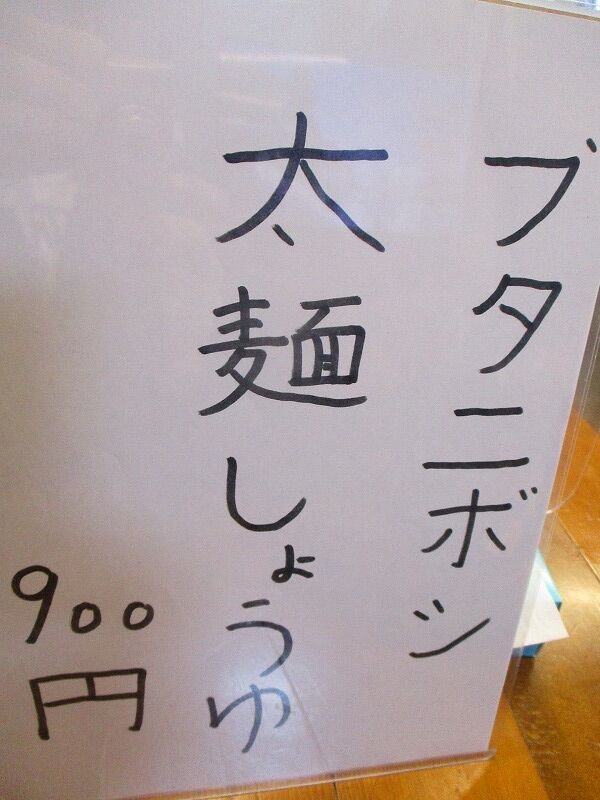 ブタニボシ
太麺しょうゆ
900円